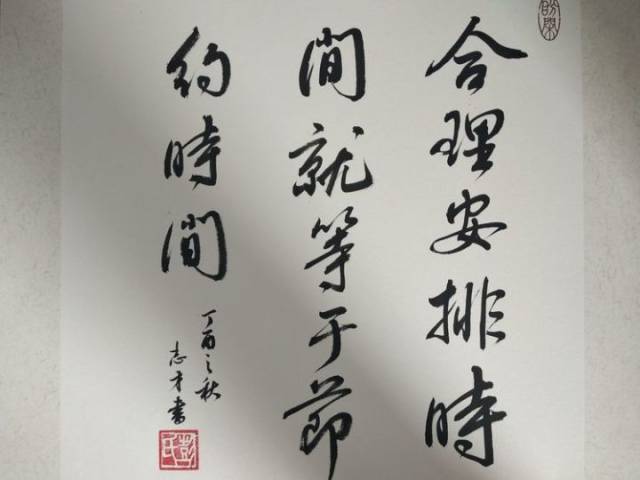 合理安排時
間就等于節
約時間
丁酉之秋
志才書
彭氏